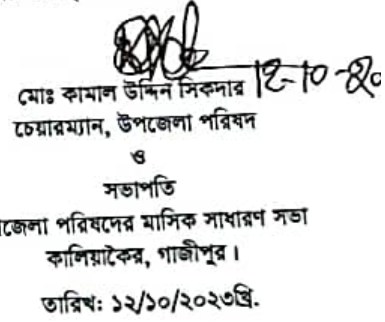 মোঃ কামাল উদ্দিন সিকদার 12-10-20
চেয়ারম্যান, উপজেলা পরিষদ
ও
সভাপতি
জেলা পরিষদের মাসিক সাধারণ সভা
কালিয়াকৈর, গাজীপুর।
তারিখঃ ১২/১০/২০২৩খ্রি.